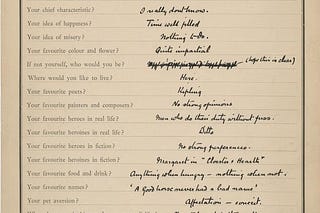 Your chief characteristic? I really don't know.
Your idea of happiness? Time well filled
Your idea of misery? Nothing to do.
Your favourite colour and flower? Quite impartial
If not yourself, who would you be? (hope this is clear)
Where would you like to live? Here.
Your favourite poets? Kipling
Your favourite painters and composers? No strong opinions
Your favourite heroes in real life? Men who do their duty without fuss.
Your favourite heroines in real life? Ditto
Your favourite heroes in fiction? No strong preferences.
Your favourite heroines in fiction? Margaret in "Cloister & Hearth"
Your favourite food and drink? Anything when hungry — nothing when not.
Your favourite names? 'A good horse never had a bad name'
Your pet aversion? Affectation — conceit.